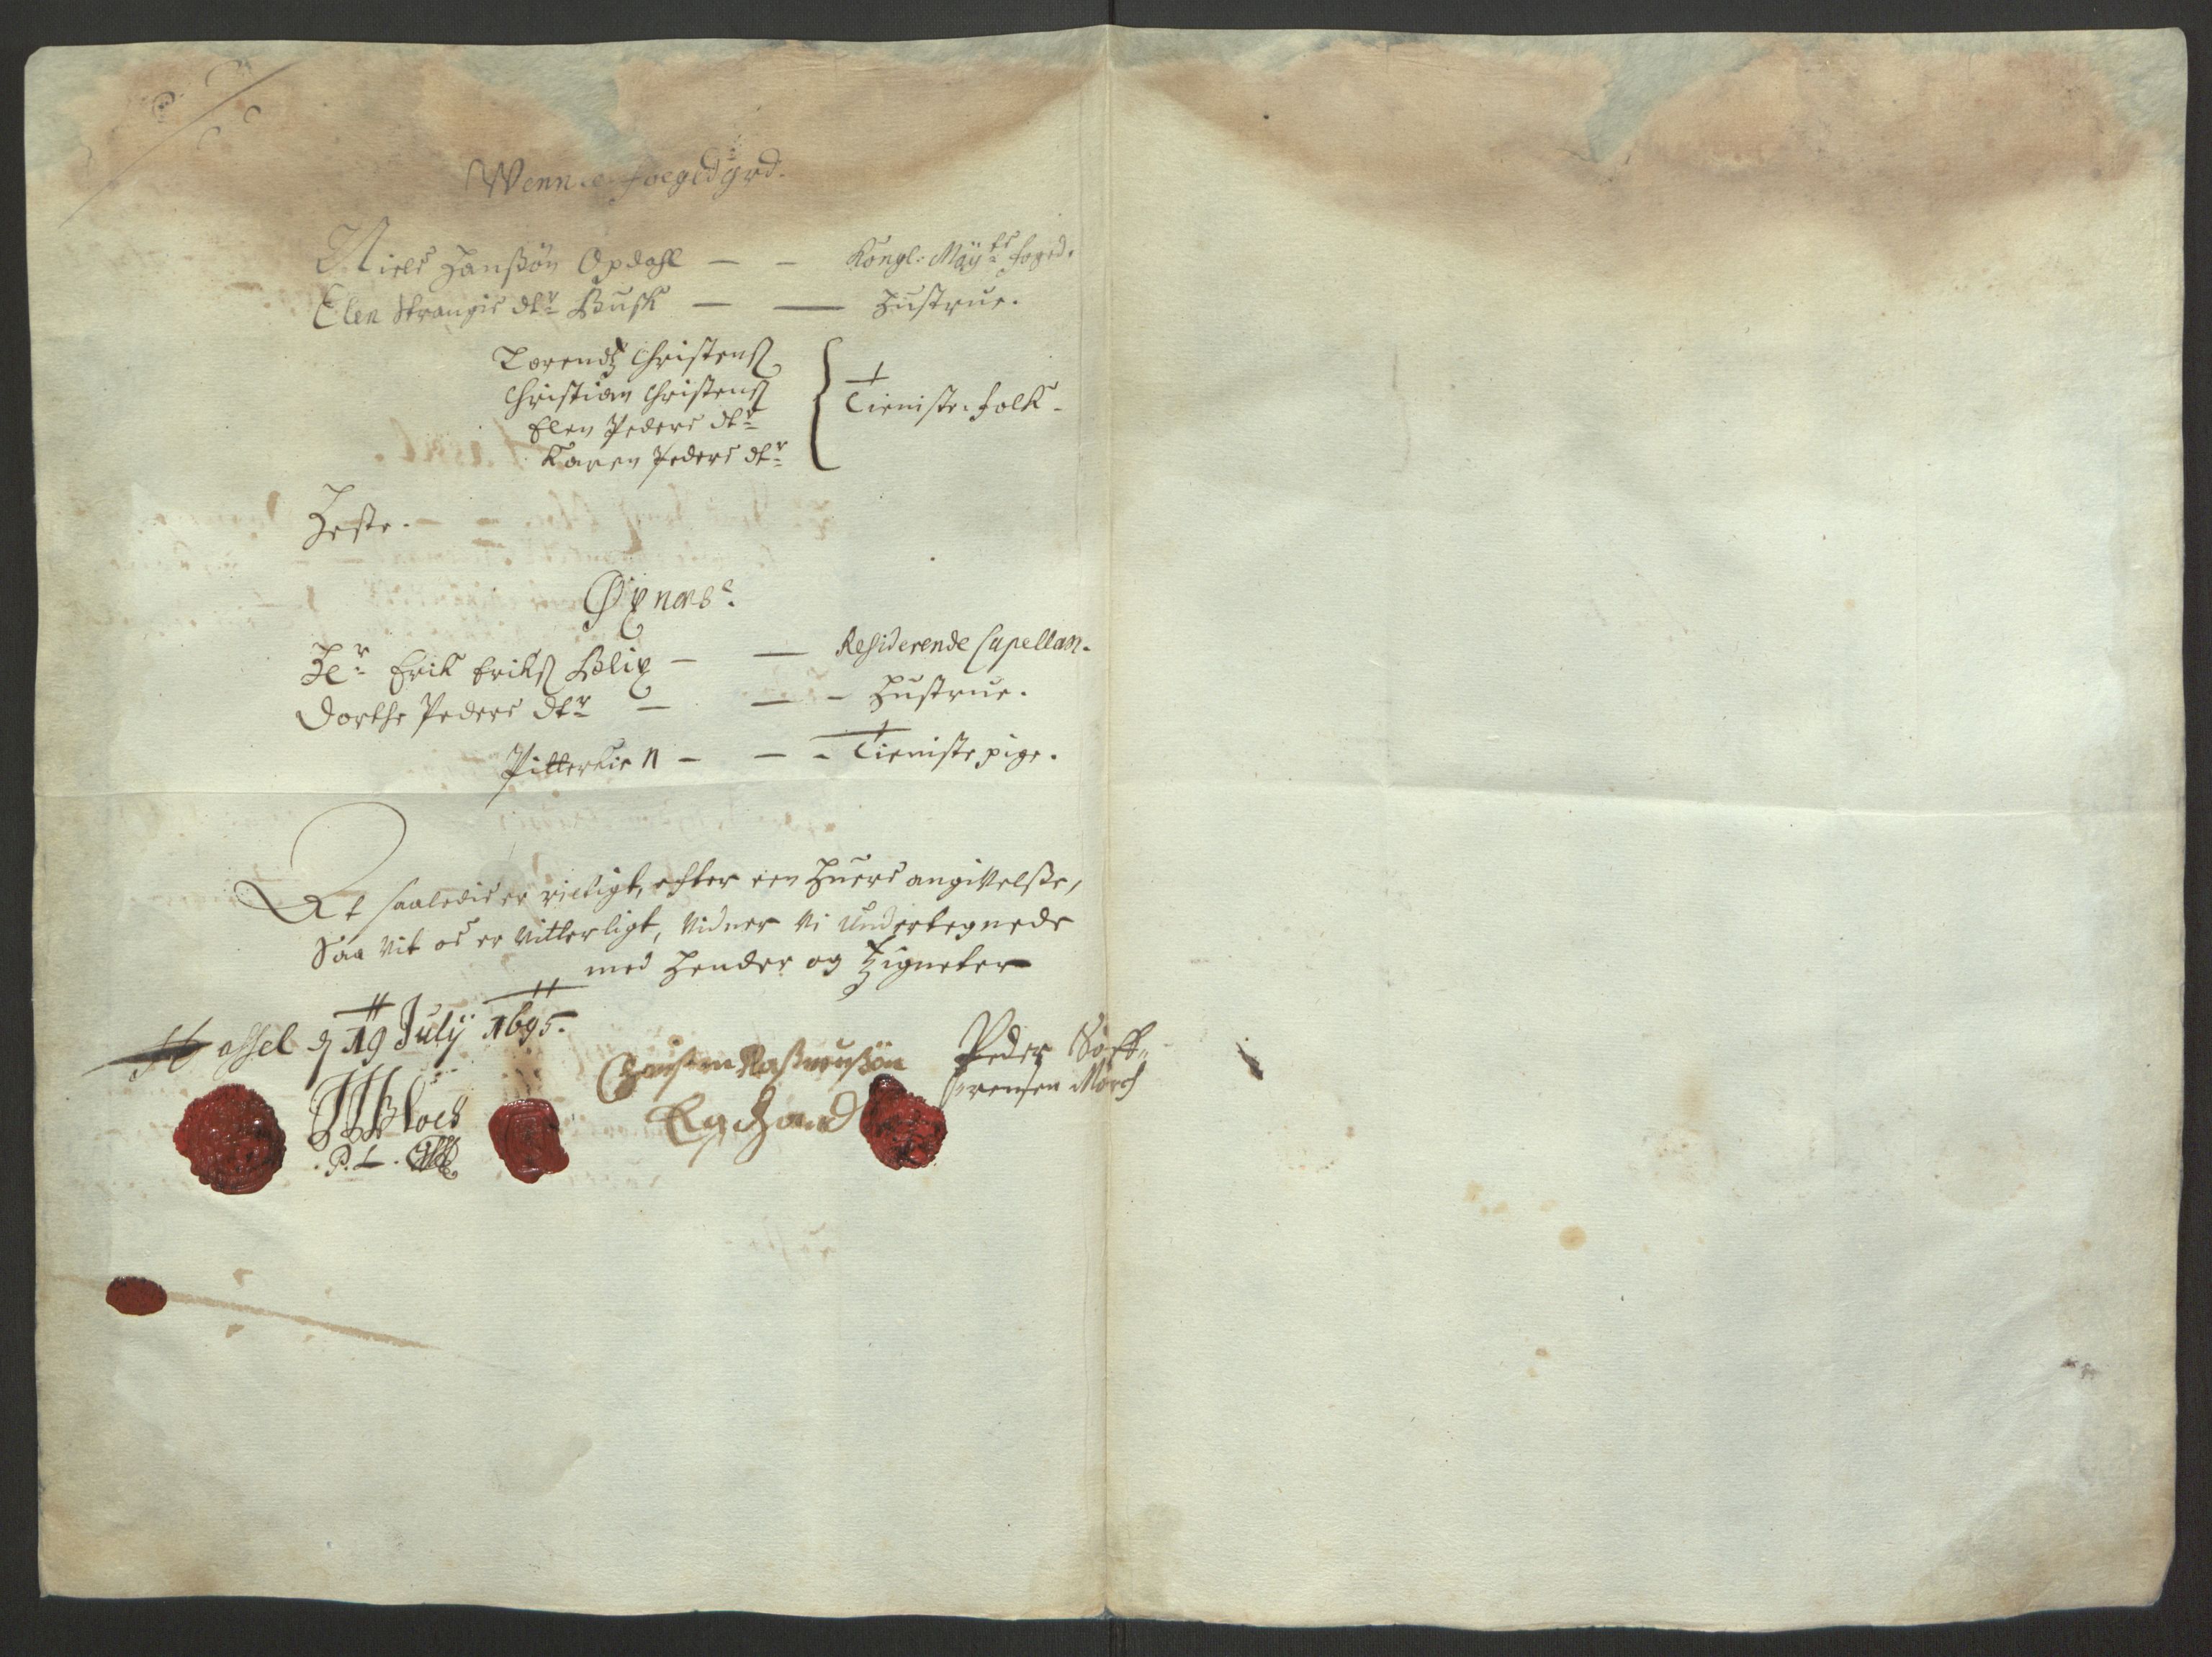 Wennie foegedgrd.
Niels Hanßøn Opdahl — — Kongl: Maÿts foged.
Elen Strangis dtr Busk — — Hustrue.
Lorendtz Christens
Christian Christens
Elen Peders dtr
Karen Peders dtr
Tieniste folk.
Heste.
Øxnæs.
Hr Erik Eriks Blix — — Residerende Capellan.
Dorthe Peders dtr — — Hustrue.
Pitterkien — — Tieniste pige.
At saaledis er rictigt, efter een huers angivelße,
Saa vit os er vitterligt, vidner vi Undertegnede
med Hender og Zigneter
Hassel d 19 Julÿ 1695.
Christen Raßmußøn
Egehand
Peder Søff-
frensen Mørch